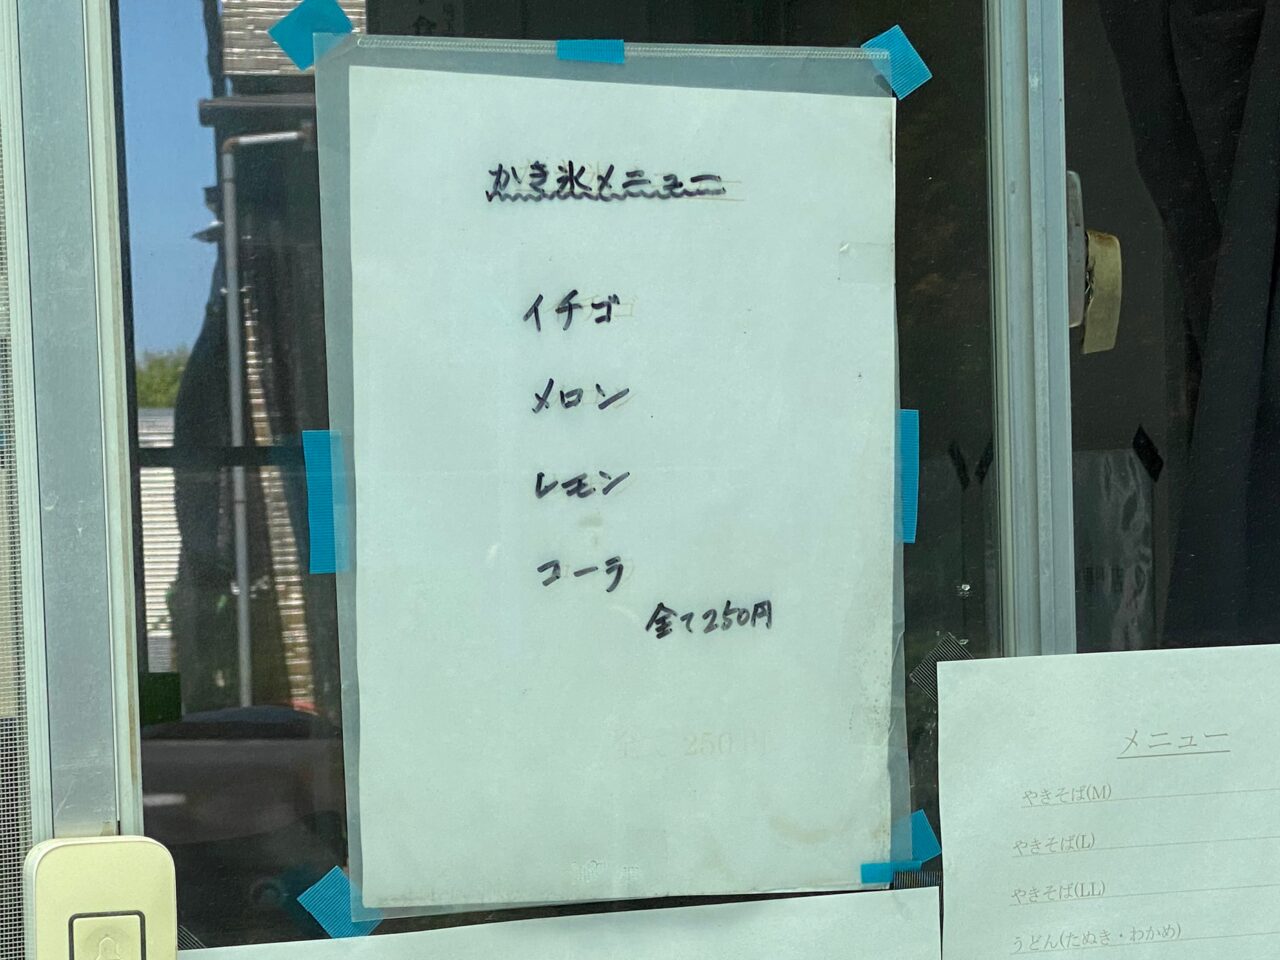 かき氷メニュー
イチゴ
メロン
レモン
コーラ
全て250円
メニュー
やきそば(M)
やきそば(L)
やきそば(LL)
うどん(たぬき・わかめ)